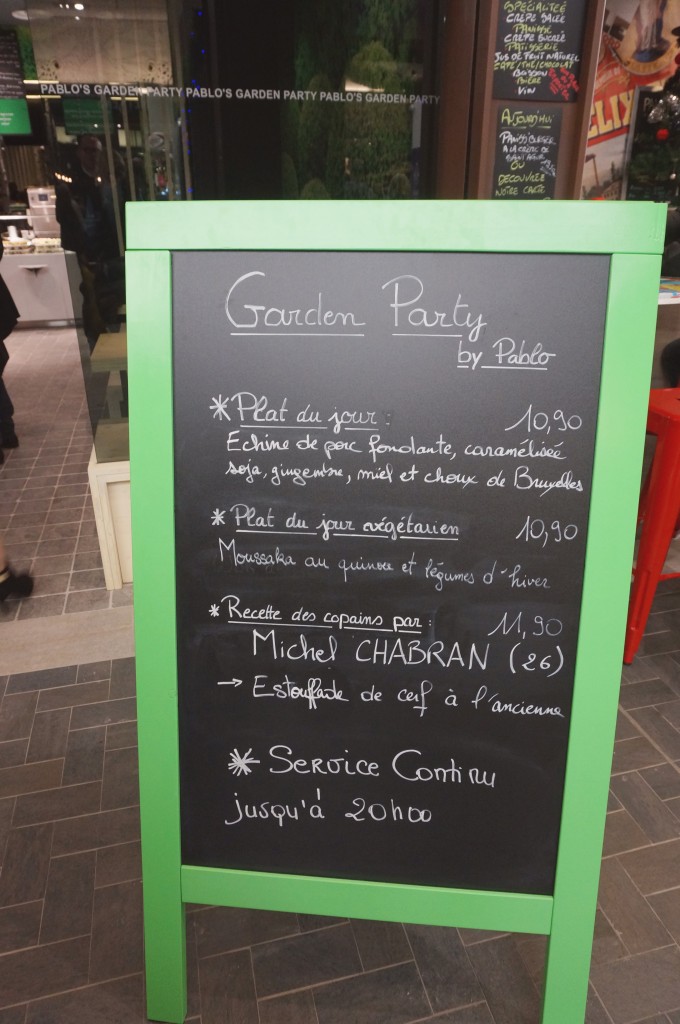 PABLO'S GARDEN PARTY PABLO'S GARDEN PARTY PABLO'S GARDEN PARTY
SPÉCIALITÉE
CRÊPE SALÉE
PANISSE
CRÊPE SUCRÉE
PATISSERIE
JUS DE FRUIT NATUREL
CAFÉ/THÉ/CHOCOLAT
BOISSON
BIÈRE
VIN
AUJOURD'HUI
A LA CRÈME DE
OU
DECOUVREZ
NOTRE CARTE
Garden Party
by Pablo
* Plat du jour : 10,90
Echine de porc fondante, caramélisée
soja, gingembre, miel et choux de Bruxelles
* Plat du jour végétarien 10,90
Moussaka au quinoa et légumes d'hiver
* Recette des copains par : 11,90
Michel CHABRAN (26)
→ Estouffade de cerf à l'ancienne
* Service Continu
jusqu'à 20h00